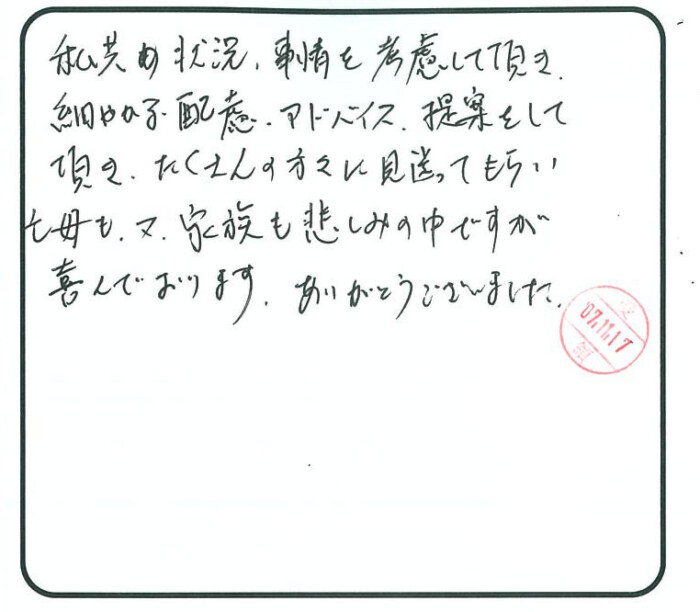 私共の状況、事情を考慮して頂き、
細やかな配慮、アドバイス、提案をして
頂き、たくさんの方々に見送ってもらい
亡母も、又、家族も悲しみの中ですが
喜んでおります。ありがとうございました。
07.11.17